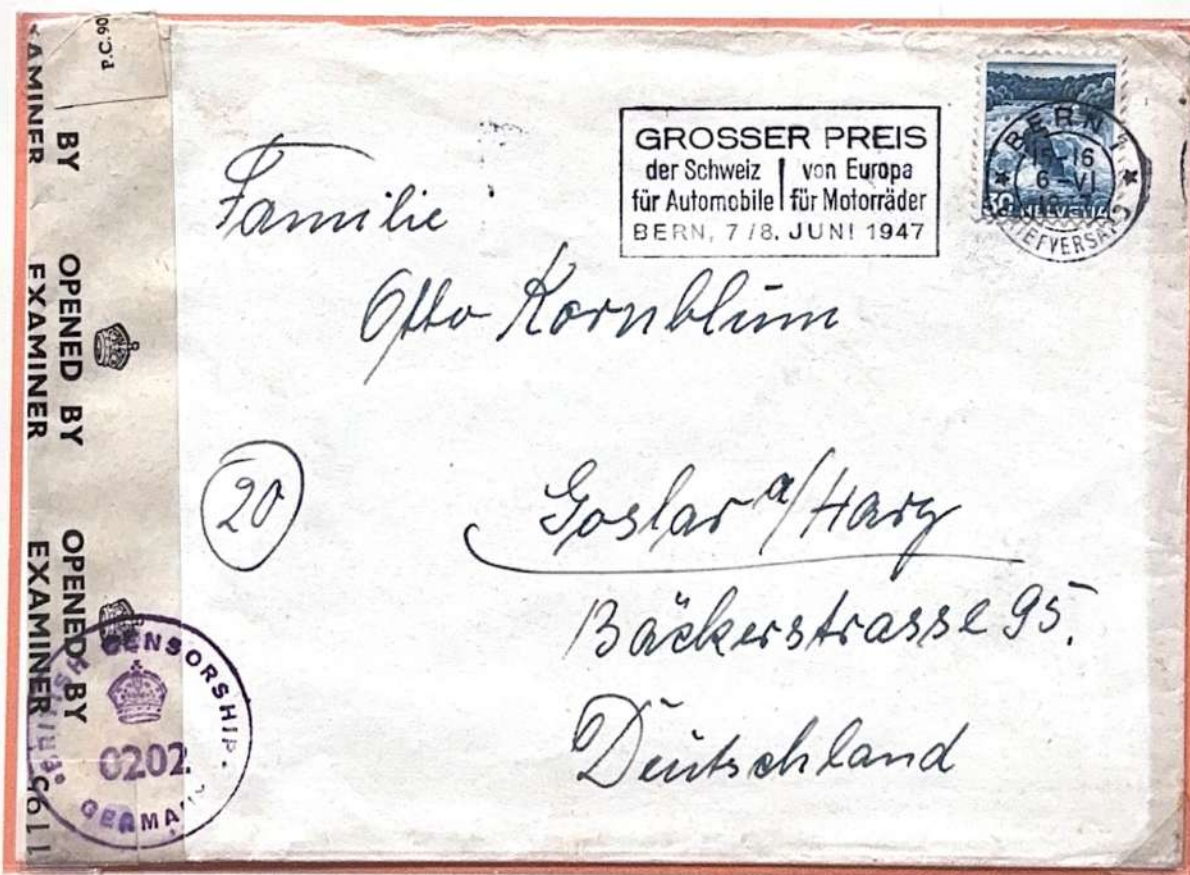 P.C.90
BY
AMINER
OPENED BY
EXAMINER
OPENED BY
EXAMINER
C611
CENSORSHIP.
0202
GERMANY
BRITISH
GROSSER PREIS
der Schweiz | von Europa
für Automobile | für Motorräder
BERN, 7/8. JUNI 1947
BERN 1
15-16
6-VI
BRIEFVERSAND
HELVETIA
Familie
Otto Kornblum
20
Goslar a/Harz
Bäckerstrasse 95.
Deutschland